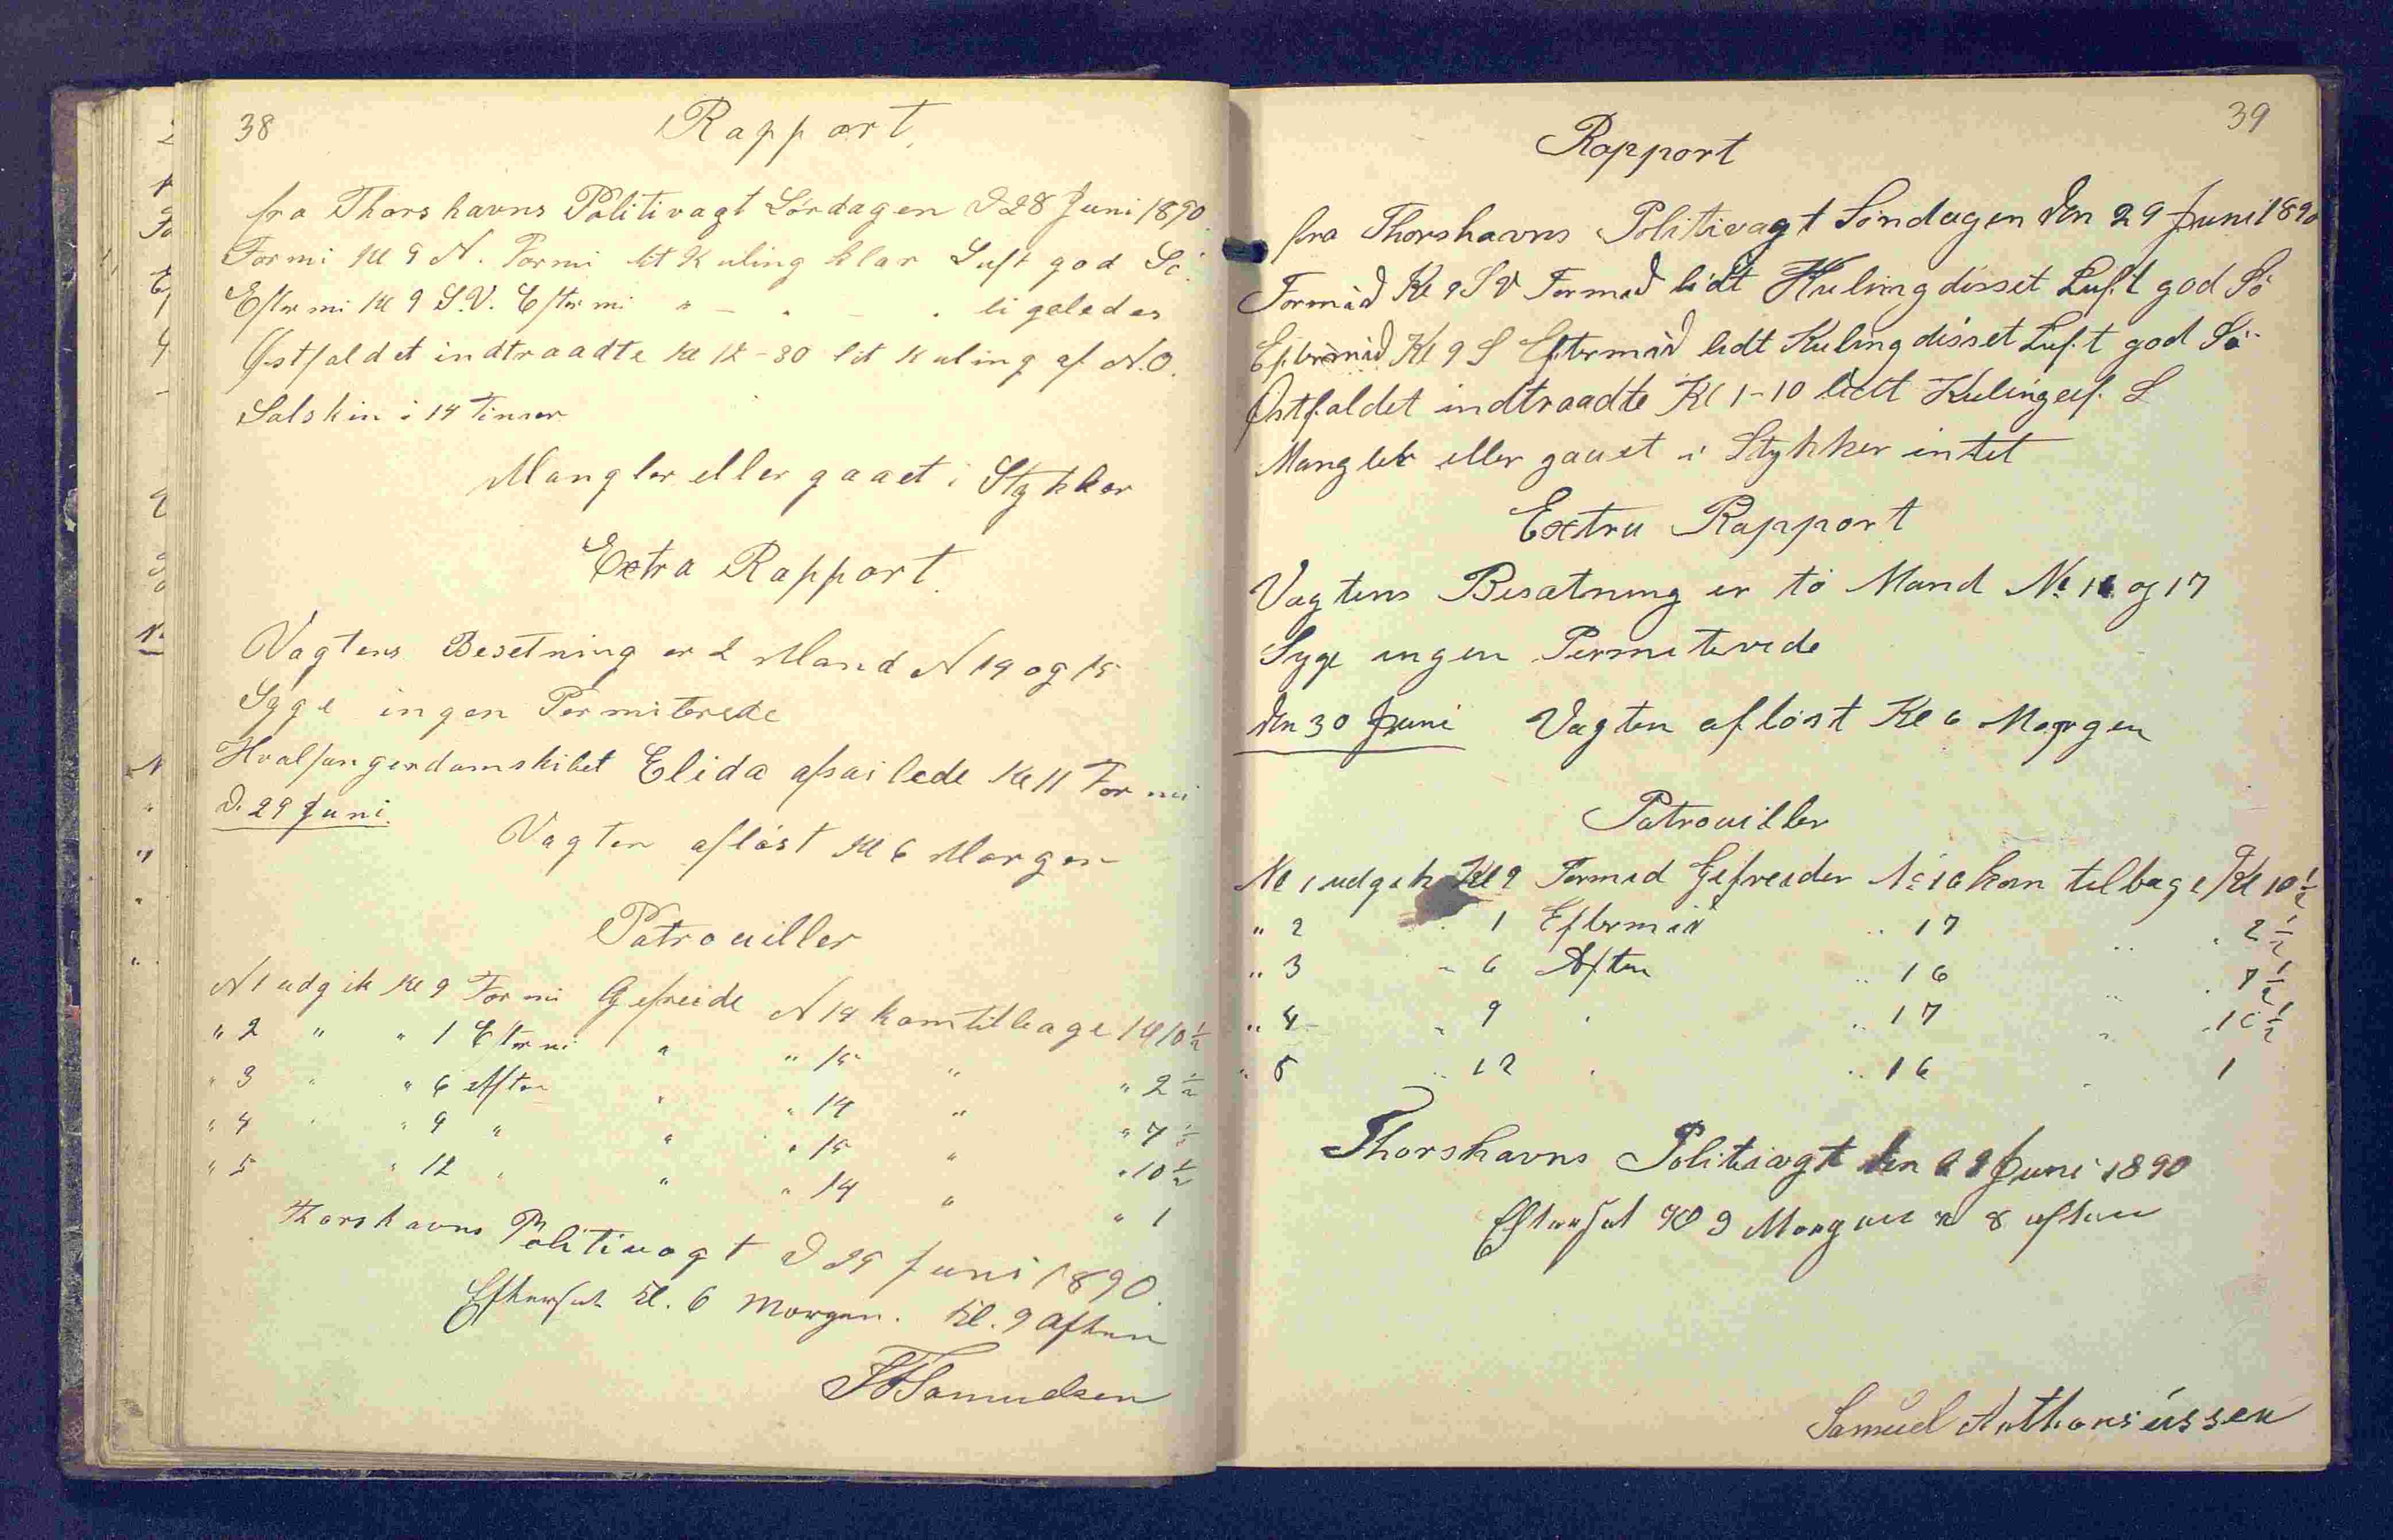 38
Rapport.
fra Thorshavns Politivagt Lørdagen D 28 Juni 1890.
Formi Kl 9 N. Formi lit Kuling klar Luft god Sö.
Eftermi Kl 9 S.V. Eftermi " - " - " ligeledes
Østfaldet indtraadte Kl 12-30 lit Kuling af N.O.
Solskin i 14 Timer
Mangler eller gaaet i Stykker
Extra Rapport.
Vagtens Besetning er 2 Mand N 14 og 15
Syge ingen Permiterede
Hvalfangerdamskibet Elida afsailede Kl 11 Formi
D. 29 Juni.
Vagten afløst Kl 6 Morgen
Patrouiller
N 1 udgik Kl 9 Formi Gefreide N 14 kom tilbage Kl 10 1/2
" 2 " " 1 Etermi " " 15 " " 2 1/2
" 3 " " 6 Aften " " 14 " " 7 1/2
" 4 " " 9 " " " 15 " " 10 1/2
" 5 " 12 " " " 14 " " 1
Thorshavns Politivagt D 29 Juni 1890.
Eftersat Kl. 6 Morgen. Kl. 9 Aften
Samuelsen
39
Rapport
fra Thorshavns Politivagt Söndagen den 29 Juni 1890
Formid Kl 9 S V Formid lidt Kuling disset Luft god Sö
Eftermid Kl 9 S Eftermid lidt Kuling disset Luft god Sö
Østfaldet indtraadte Kl 1-10 lidt Kuling af S
Mangler eller gaaet i Stykker intet
Extra Rapport
Vagtens Besætning er tö Mand No 16 og 17
Syge ingen Permiterede
den 30 Juni Vagten aflöst Kl 6 Morgen
Patrouiller
No 1 udgik Kl 9 Formid Gefreider No 16 kom tilbage Kl 10 1/2
" 2 " 1 Eftermid " 17 " " 2 1/2
" 3 " 6 Aften " 16 " " 7 1/2
" 4 " 9 " " 17 " " 10 1/2
" 5 " 12 " " 16 " 1
Thorshavns Politivagt den 29 Juni 1890
Eftersat Kl 9 Morgen " 8 aften
Samuel Anthoniussen